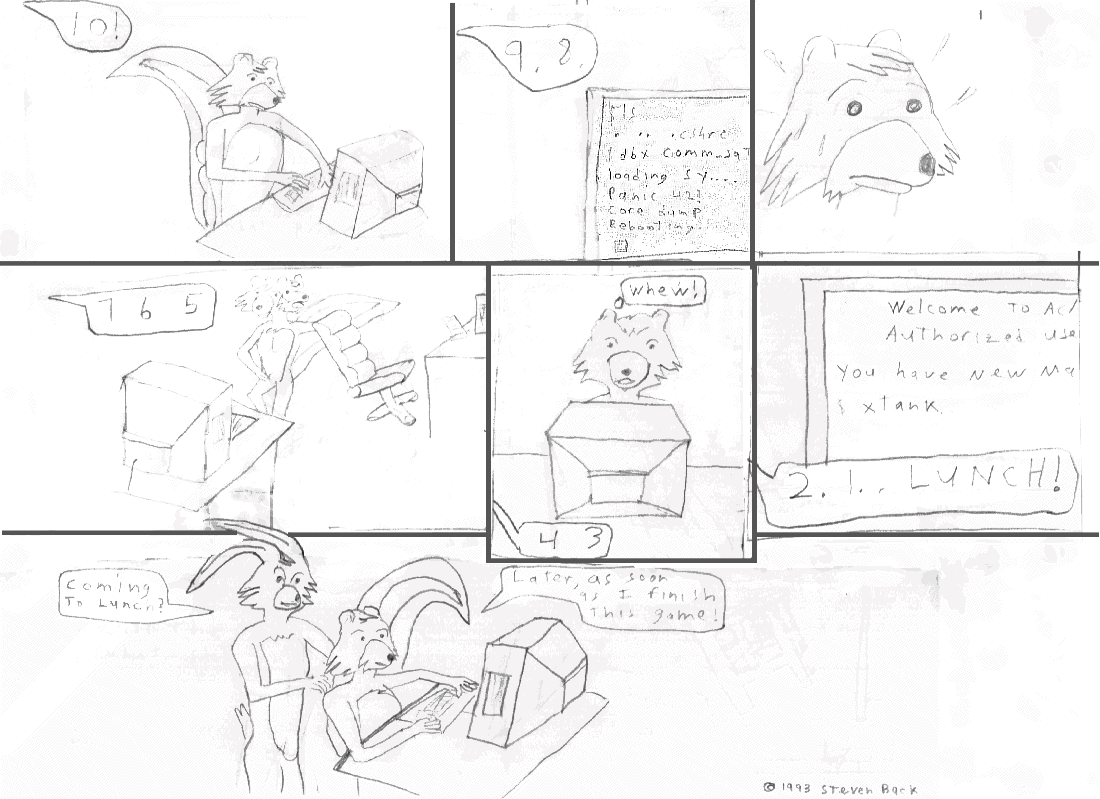 10!
9. 8.
ls
. .. .cshrc
loading sy....
Panic 42!
Core dump
Rebooting
7 6 5
whew!
4 3
Welcome To
Authorized use
You have New Ma
$ xtank
2. 1.. LUNCH!
Coming
To Lunch?
Later, as soon
as I finish
This game!
© 1993 Steven Back